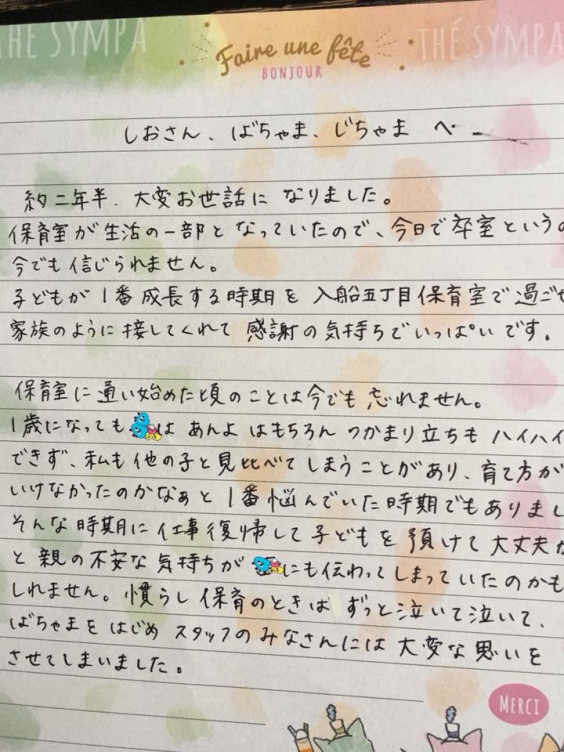 THÉ SYMPA
Faire une fête
BONJOUR
THÉ SYMPA
しおさん、ばちゃま、じちゃま へ
約二年半、大変お世話に なりました。
保育室が生活の一部と なっていたので、今日で卒室というの
今でも信じられません。
子どもが1番成長する時期を 入船五丁目保育室で過ごせ
家族のように接してくれて 感謝の気持ちでいっぱいです。
保育室に通い始めた頃のことは今でも忘れません。
1歳になっても は あんよ はもちろん つかまり立ちも ハイハイ
できず、私も他の子と見比べてしまうことがあり、育て方が
いけなかったのかなぁと 1番悩んでいた時期でもありまし
そんな時期に仕事復帰して子どもを預けて大丈夫か
と親の不安な気持ちが にも伝わってしまっていたのかも
しれません。慣らし保育のときは ずっと泣いて泣いて、
ばちゃまをはじめ スタッフのみなさんには大変な思いを
させてしまいました。
MERCI